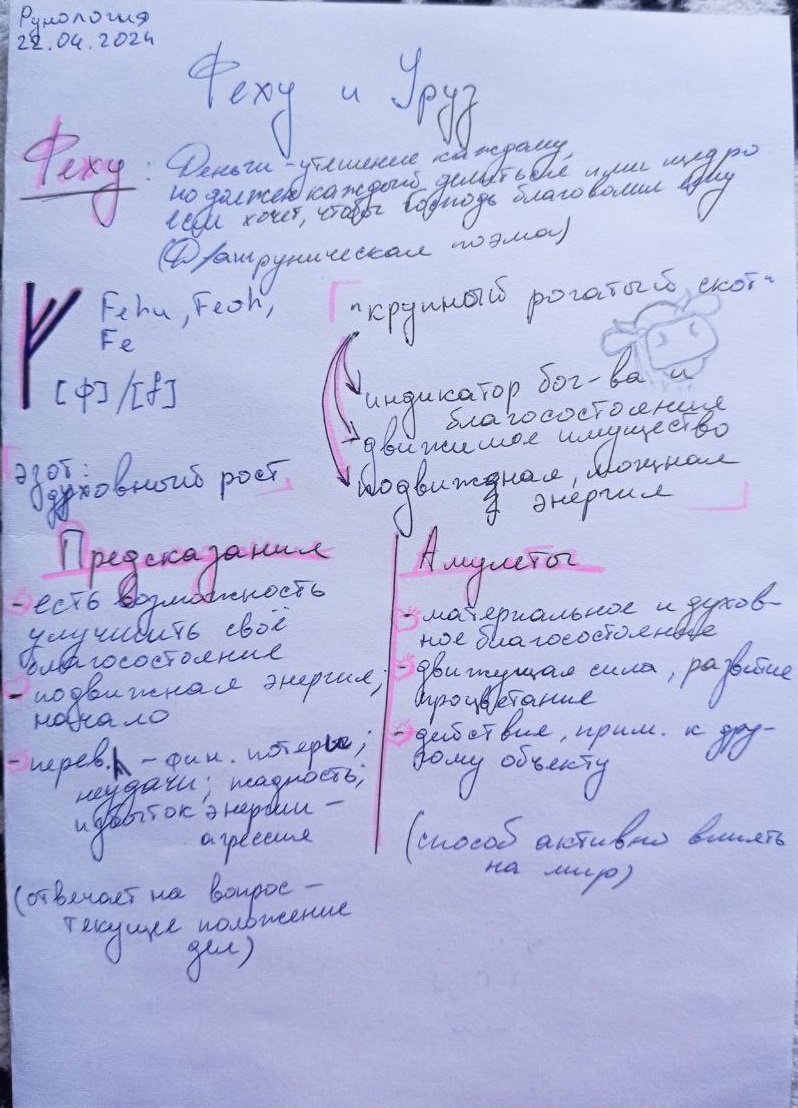 Рунология
22.04.2024
Феху и Уруз
Феху: Деньги - утешение каждому,
но должен каждый делиться ими щедро
если хочет, чтобы Господь благоволил ему
(руническая поэма)
Fehu, Feoh,
Fe
[ф]/[f]
эзот.:
духовный рост
"крупный рогатый скот"
индикатор бог-ва и
благосостояния
движимое имущество
подвижная, мощная
энергия
Предсказания
- есть возможность
улучшить своё
благосостояние
- подвижная энергия;
начало
- перев. - фин. потери;
неудачи; жадность;
избыток энергии -
агрессия
(отвечает на вопрос -
текущее положение
дел)
Амулеты
- материальное и духов-
ное благосостояние
- движущая сила, развитие
процветание
- действия, прим. к дру-
гому объекту
(способ активно влиять
на мир)